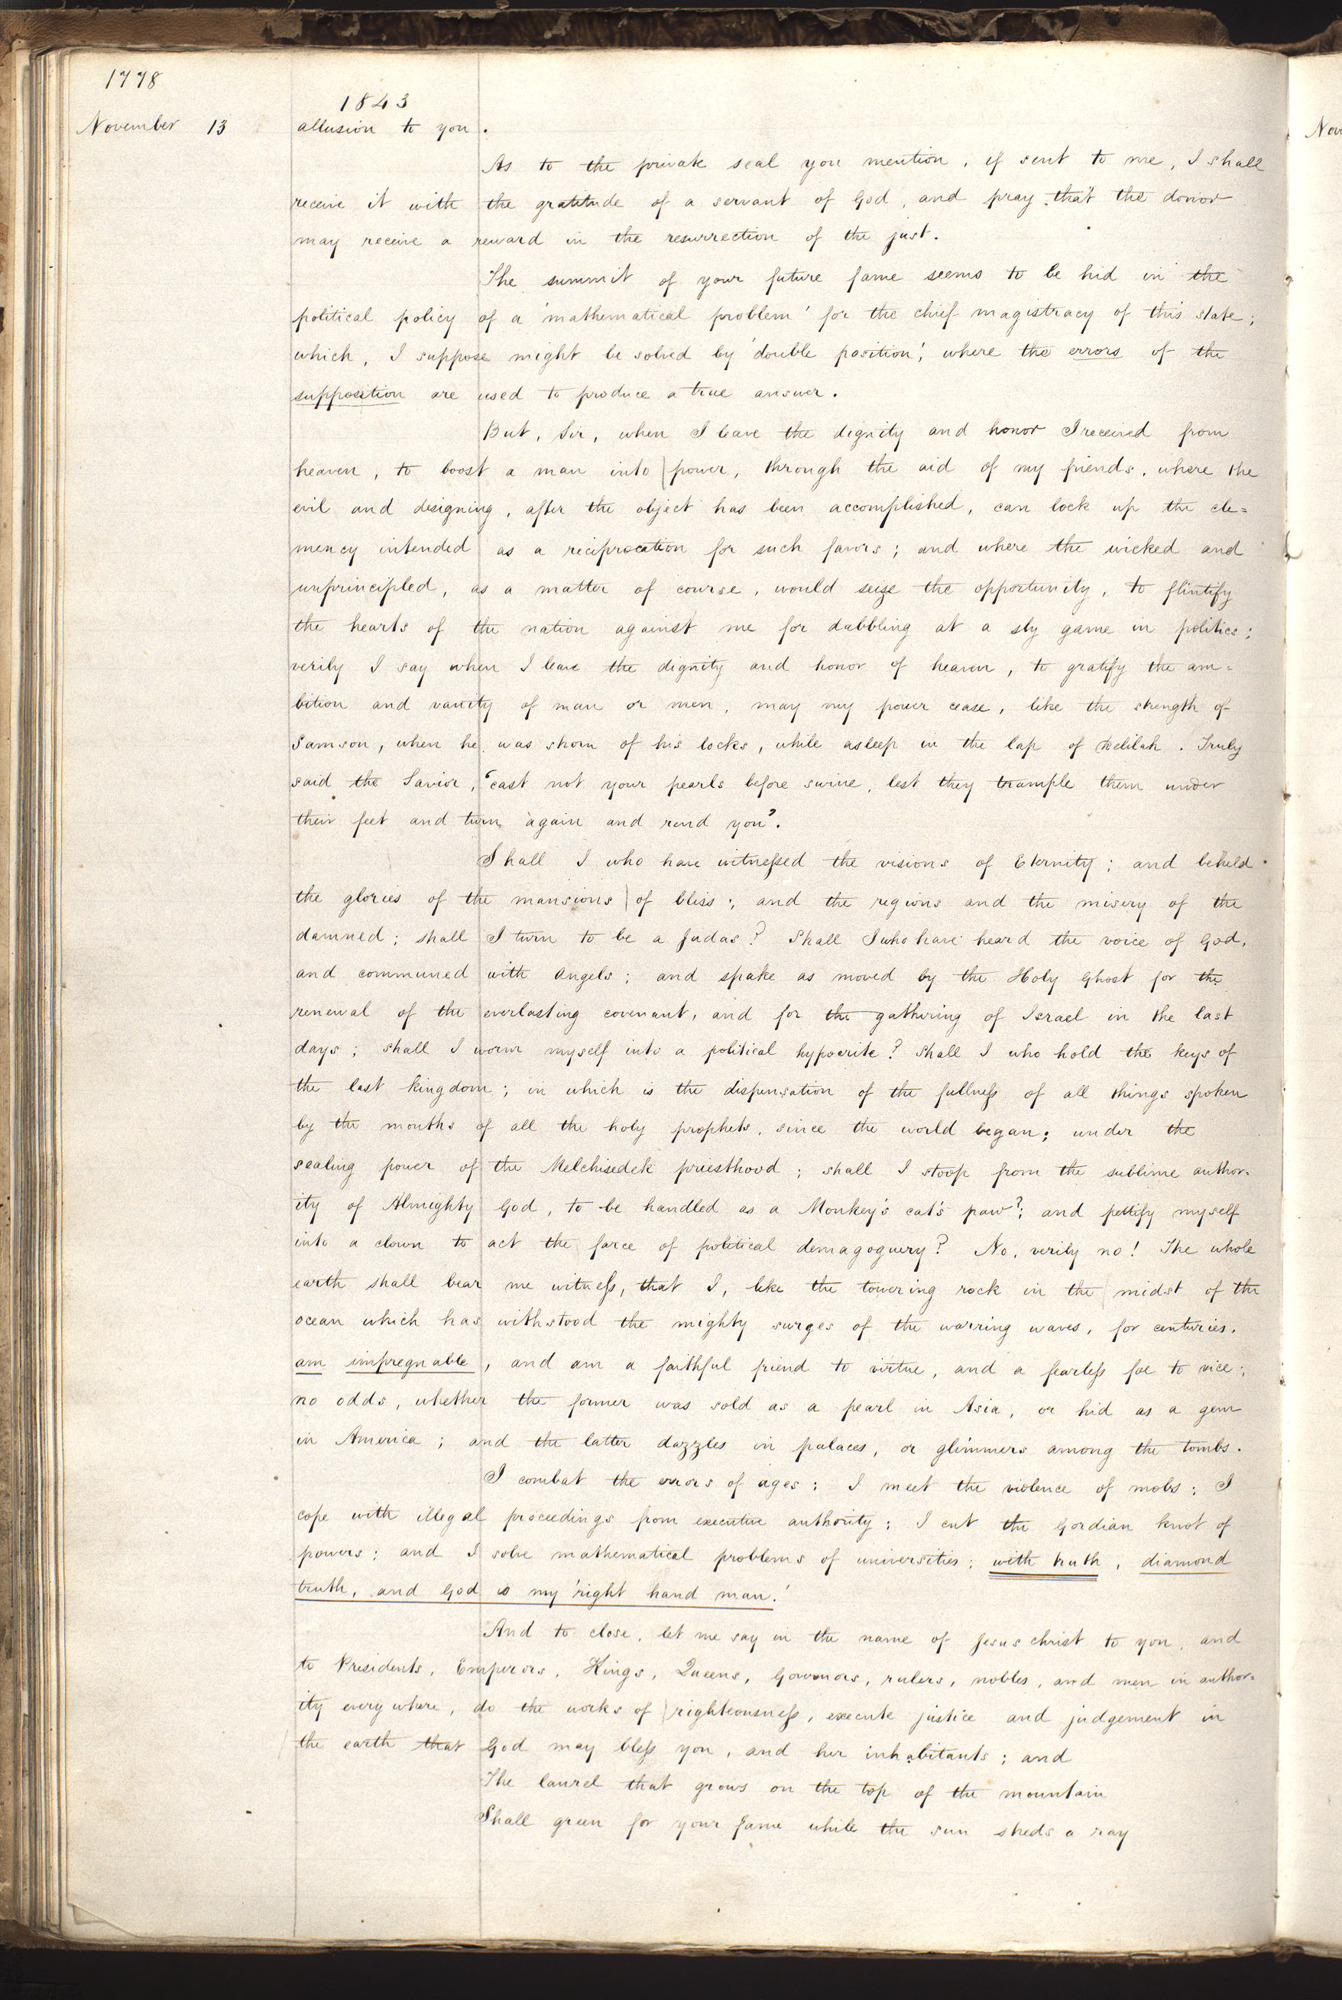 1778
1843
November 13 allusion to you.
As to the private seal you mention, if sent to me, I shall
receive it with the gratitude of a servant of God, and pray that the donor
may receive a reward in the resurrection of the just.
The summit of your future fame seems to be hid in the
political policy of a 'mathematical problem' for the chief magistracy of this state;
which, I suppose might be solved by 'double position', where the errors of the
supposition are used to produce a true answer.
But, Sir, when I leave the dignity and honor I received from
heaven, to boost a man into power, through the aid of my friends, where the
evil and designing, after the object has been accomplished, can lock up the cle=
mency intended as a reciprocation for such favors; and where the wicked and
unprincipled, as a matter of course, would seize the opportunity, to flintify
the hearts of the nation against me for dabbling at a sly game in politics;
verily I say when I leave the dignity and honor of heaven, to gratify the am=
bition and vanity of man or men, may my power cease, like the strength of
Samson, when he was shorn of his locks, while asleep in the lap of Delilah. Truly
said the Savior, 'cast not your pearls before swine, lest they trample them under
their feet and turn again and rend you'.
Shall I who have witnessed the visions of Eternity; and beheld
the glories of the mansions of bliss; and the regions and the misery of the
damned; shall I turn to be a Judas? Shall I who have heard the voice of God,
and communed with Angels; and spake as moved by the Holy Ghost for the
renewal of the everlasting covenant, and for the gathering of Israel in the last
days; shall I worm myself into a political hypocrite? Shall I who hold the keys of
the last kingdom; in which is the dispensation of the fullness of all things spoken
by the mouths of all the holy prophets, since the world began; under the
sealing power of the Melchisedek priesthood; shall I stoop from the sublime author=
ity of Almighty God, to be handled as a Monkey's cat's paw?; and pettify myself
into a clown to act the farce of political demagoguery? No, verily no! The whole
earth shall bear me witness, that I, like the towering rock in the midst of the
ocean which has withstood the mighty surges of the warring waves, for centuries,
am impregnable, and am a faithful friend to virtue, and a fearless foe to vice;
no odds, whether the former was sold as a pearl in Asia, or hid as a gem
in America; and the latter dazzles in palaces, or glimmers among the tombs.
I combat the errors of ages; I meet the violence of mobs; I
cope with illegal proceedings from executive authority; I cut the Gordian knot of
powers; and I solve mathematical problems of universities; with truth, diamond
truth, and God is my 'right hand man.'
And to close, let me say in the name of Jesus Christ to you, and
to Presidents, Emperors, Kings, Queens, Governors, rulers, nobles, and men in author=
ity everywhere, do the works of righteousness, execute justice and judgement in
the earth that God may bless you, and her inhabitants; and
The laurel that grows on the top of the mountain
Shall green for your fame while the sun sheds a ray